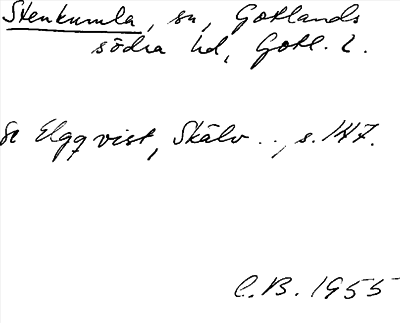 Stenkumla, sn, Gotlands
södra hd, Gotl. l.
Se Elgqvist, Skälv . ., s. 147.
C.B. 1955